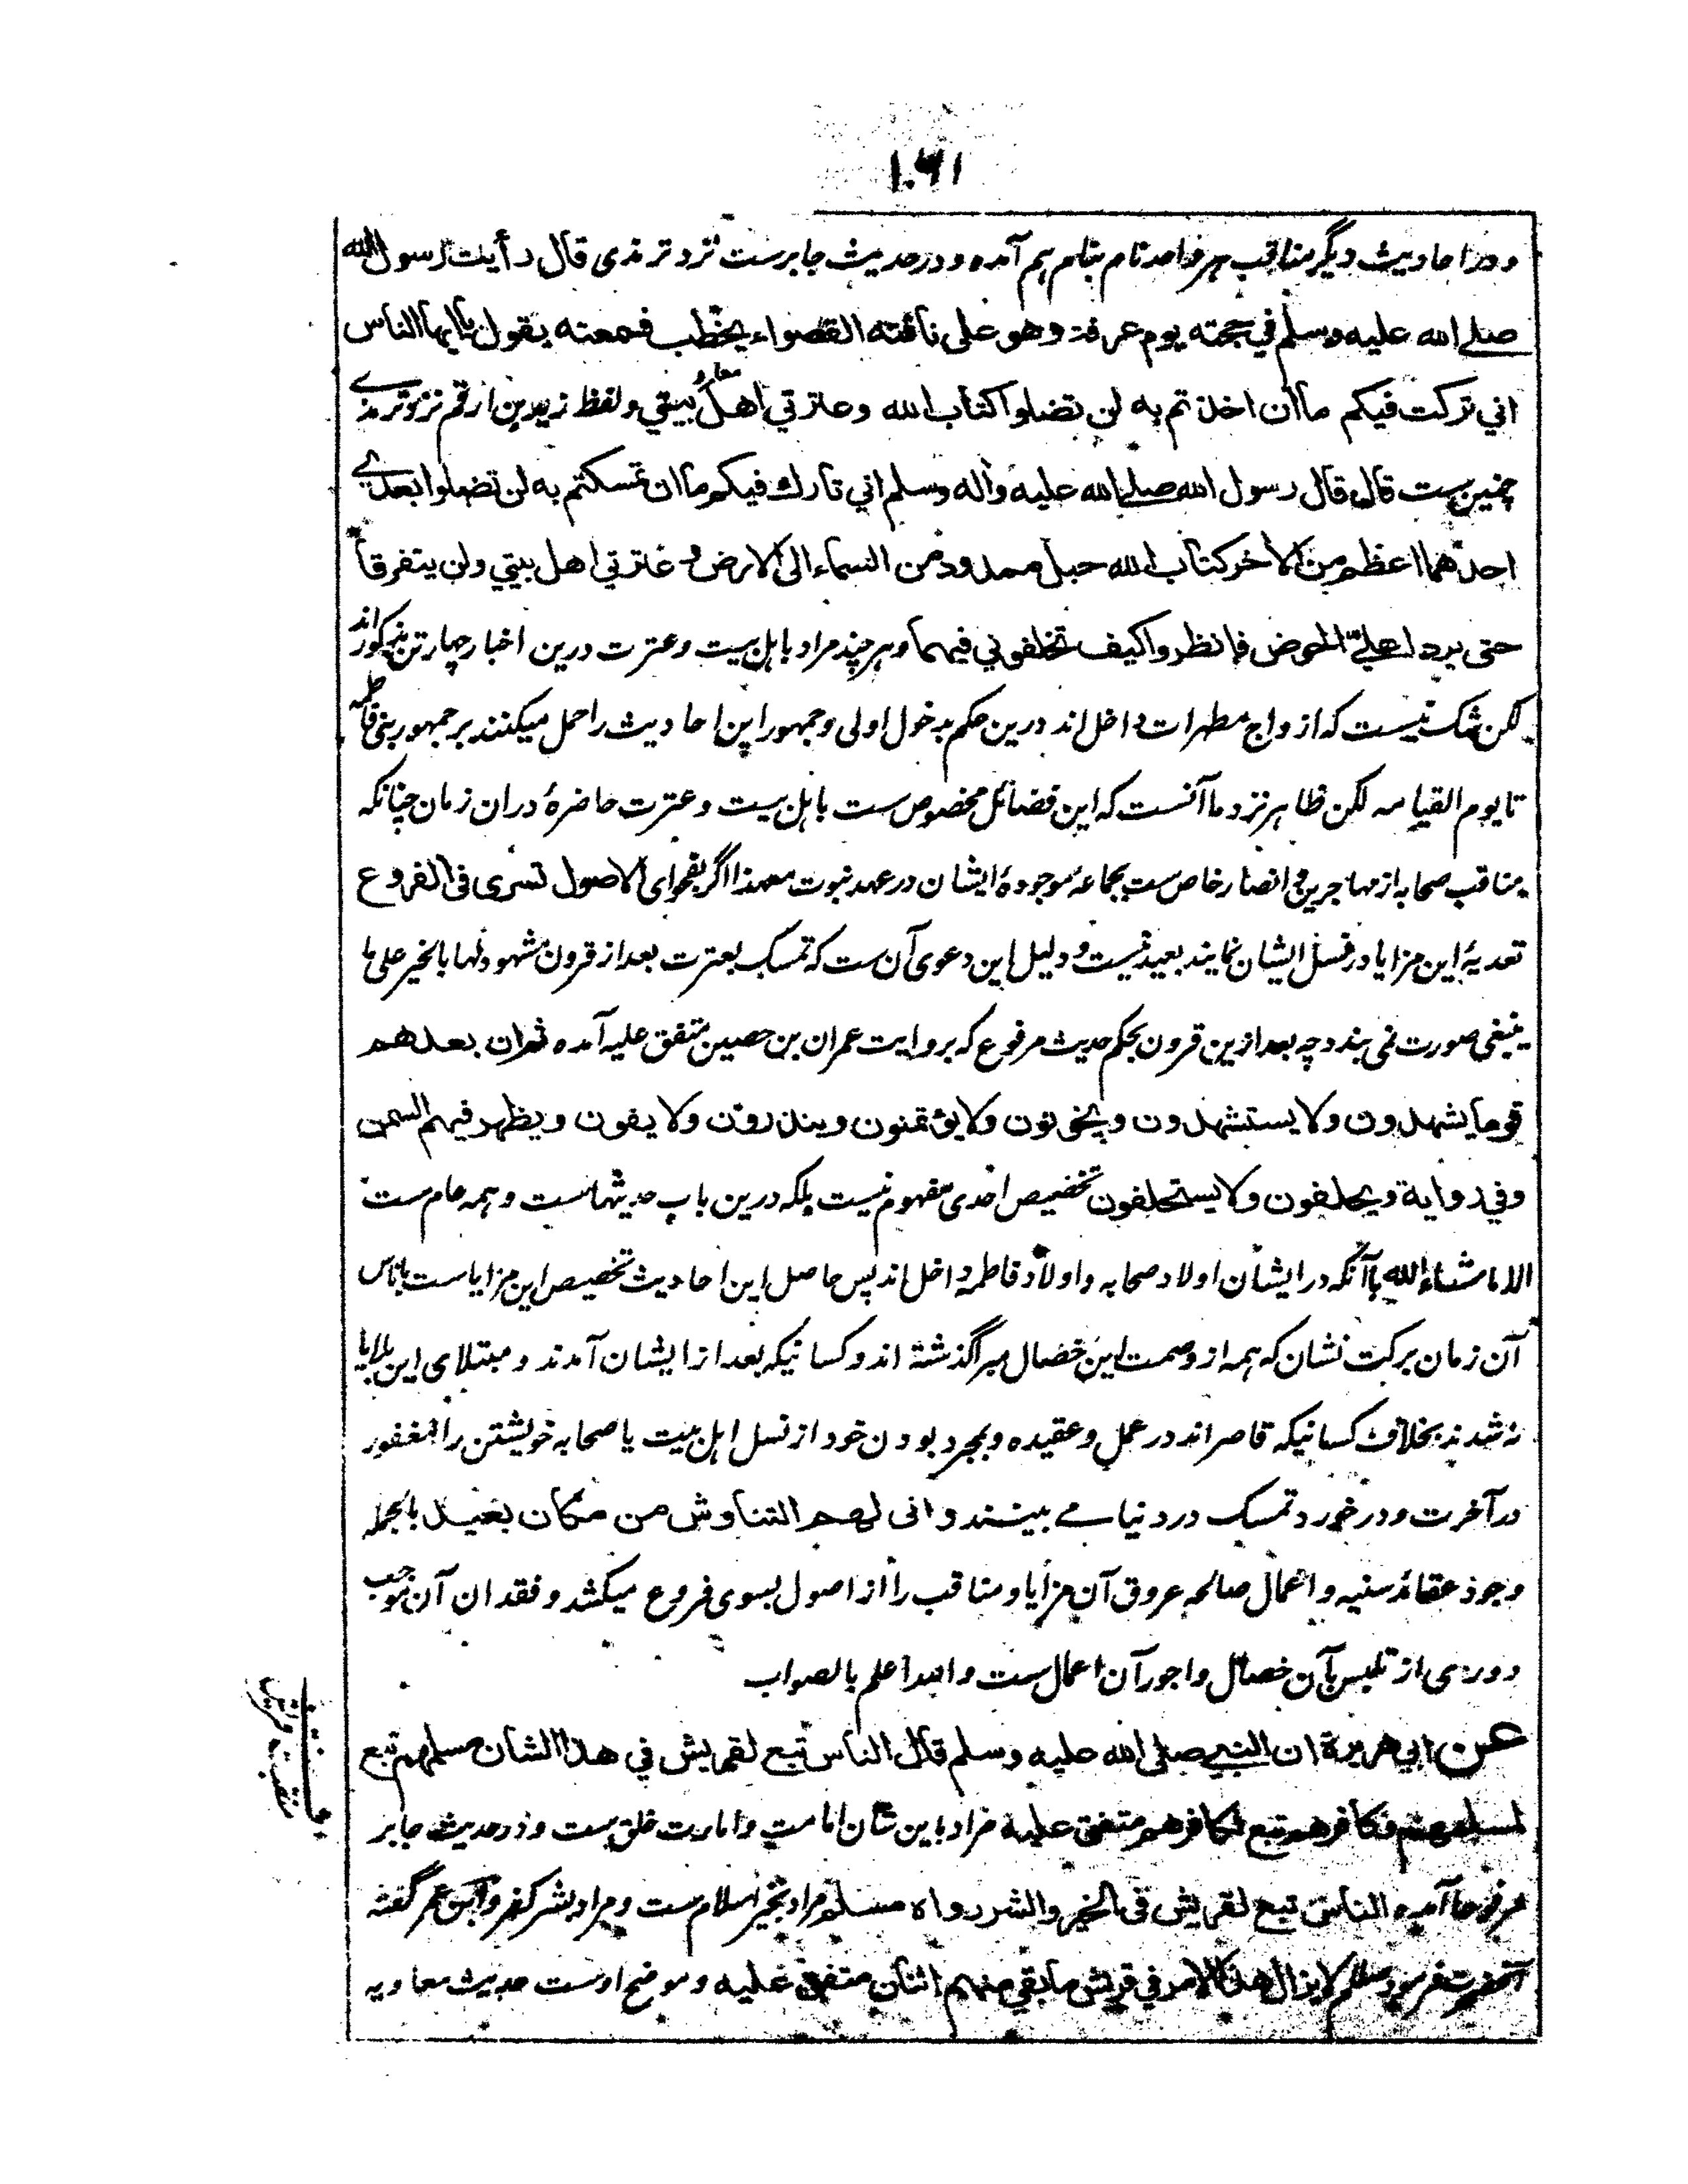 ۱۰۶۱
و در احادیث دیگر مناقب هر واحد نام بنام هم آمده و در حدیث جابرست نزد ترمذی قال رأیت رسول الله
صلے الله علیه وسلم في حجته يوم عرفة وهو على ناقته القصواء يخطب فسمعته يقول يا ايها الناس
اني تركت فيكم ما ان اخذتم به لن تضلوا كتاب الله وعترتي اهل بيتي ولفظ زید بن ارقم نزد ترمذے
چنین ست قال قال رسول الله صلے الله عليه وآله وسلم اني تارك فيكم ما ان تمسكتم به لن تضلوا بعدے
احدهما اعظم من الاخر كتاب الله حبل ممدود من السماء الى الارض وعترتي اهل بيتي ولن يتفرقا
حتى يردا علىّ الحوض فانظروا كيف تخلفوني فيهما و هر چند مراد باهل بیت و عترت درین اخبار چهارتن مذکور اند
لکن شک نیست که ازواج مطهرات داخل اند درین حکم بدخول اولی و جمهور این احادیث را حمل میکنند بر جمهور بنی فاطمه
تا یوم القیامه لکن ظاهر نزد ما آنست که این فضائل مخصوص ست باهل بیت و عترت حاضرهٔ دران زمان چنانکه
مناقب صحابه از مهاجرین و انصار خاص ست بجماعهٔ موجودهٔ ایشان در عهد نبوت معهذا اگر بفحوای الاصول تسری فی الفروع
تعدیهٔ این مزایا در نسل ایشان نمایند بعید نیست و دلیل این دعوی آن ست که تمسک بعترت بعد از قرون مشهود لها بالخیر علی ما
ینبغی صورت نمی بندد چه بعد ازین قرون بحکم حدیث مرفوع که بروایت عمران بن حصین متفق علیه آمده ثم ان بعدهم
قوما يشهدون ولا يستشهدون ويخونون ولا يؤتمنون وينذرون ولا يفون ويظهر فيهم السمن
وفي رواية ويحلفون ولا يستحلفون تخصیص احدی مفهوم نیست بلکه درین باب حدیثهاست و همه عام ست
الا ما شاء الله با آنکه در ایشان اولاد صحابه و اولاد فاطمه داخل اند پس حاصل این احادیث تخصیص این مزایاست بناس
آن زمان برکت نشان که همه از وصمت این خصال مبرا گذشته اند و کسانیکه بعد از ایشان آمدند و مبتلای این بلایا
نه شدند بخلاف کسانیکه قاصر اند در عمل و عقیده و بمجرد بودن خود از نسل اهل بیت یا صحابه خویشتن را مغفور
در آخرت و درخورد تمسک در دنیا مے بینند وانى لهم التناوش من مكان بعيد بالجمله
وجود عقائد سنیه و اعمال صالحه عروق آن مزایا و مناقب را از اصول بسوی فروع میکشد و فقدان آن موجب
دوری از تلبس بآن خصائل و اجور آن اعمال ست والله اعلم بالصواب
عن ابي هريرة ان النبي صلى الله عليه وسلم قال الناس تبع لقريش في هذا الشان مسلمهم تبع
لمسلمهم وكافرهم تبع لكافرهم متفق عليه مراد باین شان امامت و امارت خلق ست و در حدیث جابر
مرفوعا آمده الناس تبع لقريش في الخير والشر رواه مسلم مراد بخیر اسلام ست و مراد بشر کفر و ابن عمر گفته
آنحضرت فرمود صلعم لا يزال هذا الامر في قريش ما بقي منهم اثنان متفق عليه و موضح اوست حدیث معاویه
مناقب قریش